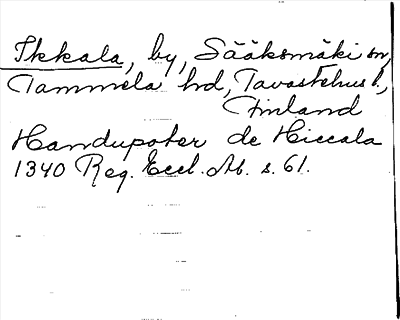 Ikkala, by, Sääksmäki sn,
Tammela hd, Tavastehus l.,
Finland
Handupoter de Hiccala
1340 Reg. Eccl. Ab. s. 61.